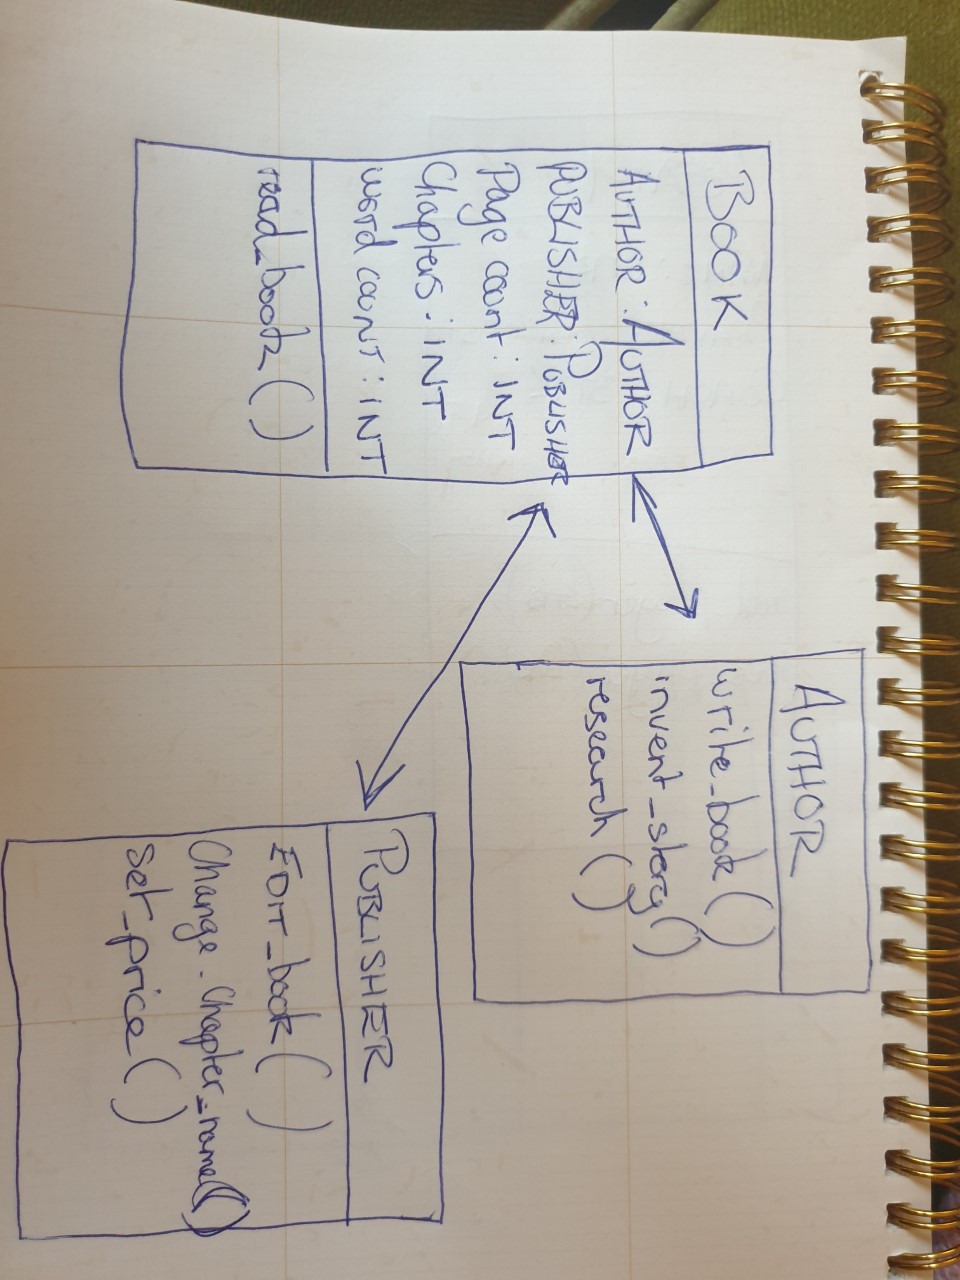 BOOK
AUTHOR : AUTHOR
PUBLISHER : PUBLISHER
Page count : INT
Chapters : INT
word count : INT
read_book ()
AUTHOR
write_book ()
invent_story ()
research ()
PUBLISHER
EDIT_book ()
Change_Chapter_name()
Set_price ()